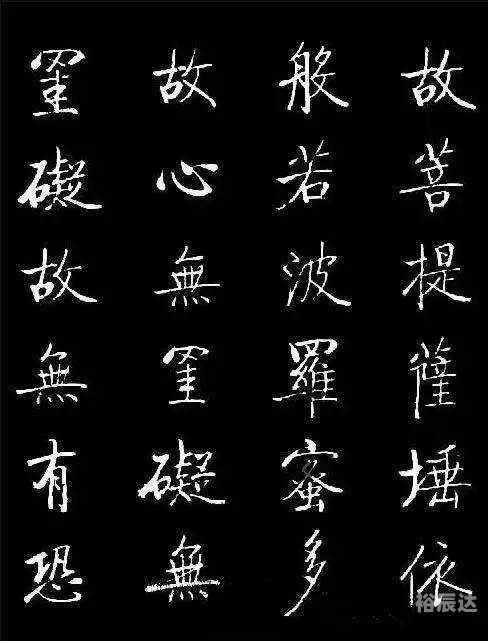 故菩提薩埵依
般若波羅蜜多
故心無罣礙無
罣礙故無有恐
裕辰达